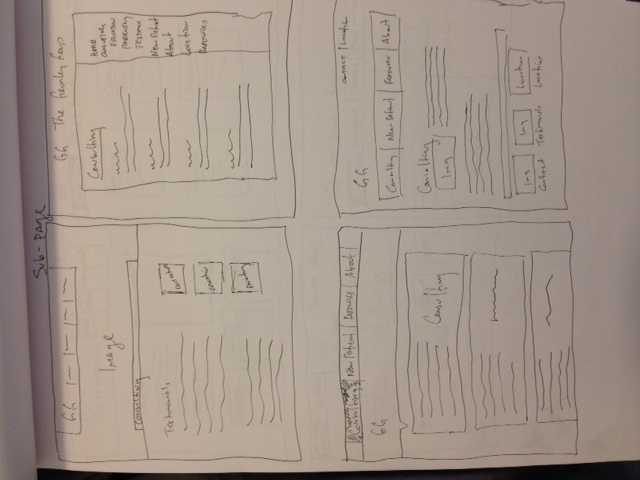 Sub-page
GG
Image
Consulting
Testimonials
Consulting
Education
Parenting
GG The Gourley Group
Consulting
HOME
Consulting
Education
Parenting
Testimon
New Patient
About
Location
Resources
Consulting New Patient Resources About
GG
Consulting
contact | Location
GG
Consulting New Patient Resources About
Consulting
Img
Img Img Location
Contact Testimonials Location